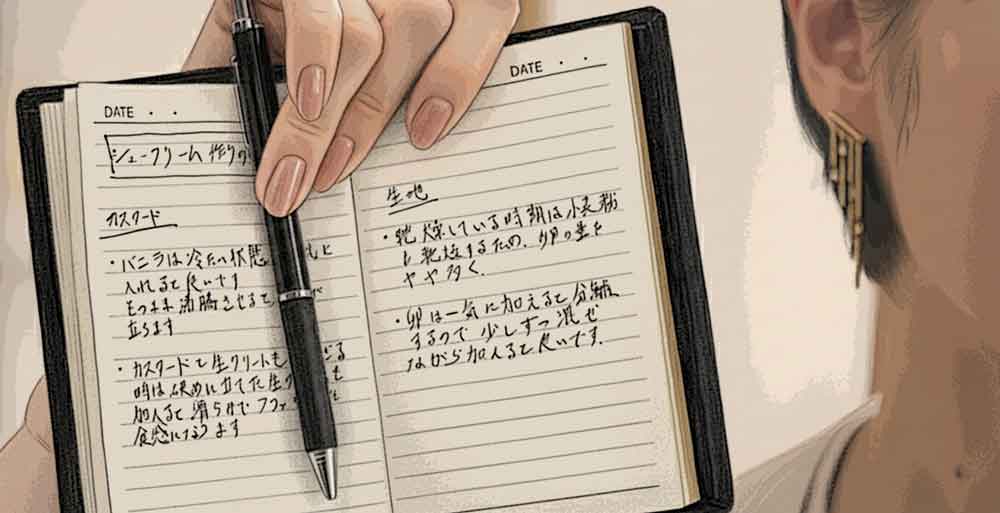 DATE ・ ・
シュークリーム 作りの
カスタード
・バニラは冷たい状態
入れると良いです
そのまま沸騰させると
立ちます
・カスタードと生クリームを
時は硬めに立てた生ク
加えると滑らかで
食感になります
DATE ・ ・
生地
・乾燥している時期は小麦粉
も乾燥するため、卵の量を
やや多く。
・卵は一気に加えると分離
するので少しずつ混ぜ
ながら加えると良いです。